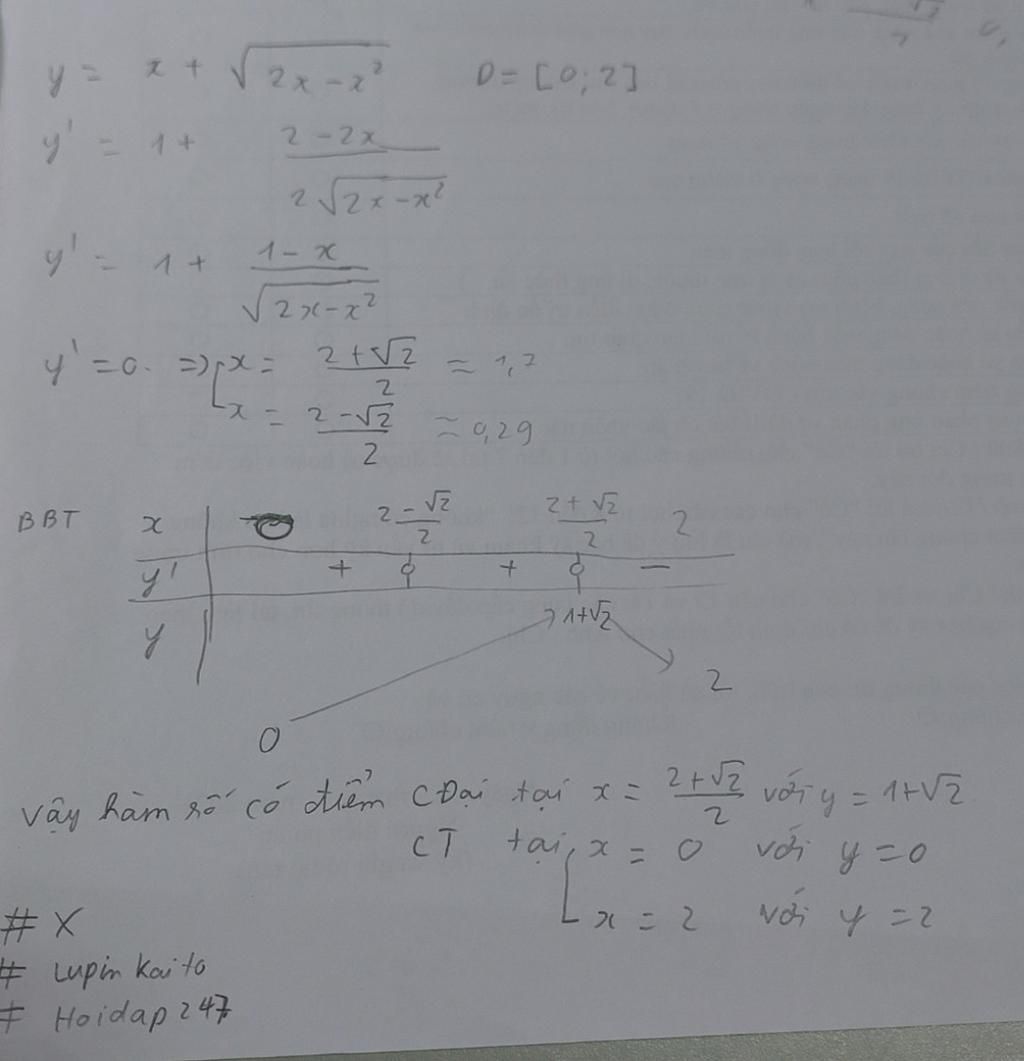 y = x + √(2x - x²) D = [0; 2]
y' = 1 + (2 - 2x)/(2√(2x - x²))
y' = 1 + (1 - x)/√(2x - x²)
y' = 0. => [ x = (2 + √2)/2 ≈ 1,7
x = (2 - √2)/2 ≈ 0,29
BBT x | 0 (2 - √2)/2 (2 + √2)/2 2
y' | + 0 + 0 -
y | 0 ↗ 1+√2 ↘ 2
Vậy hàm số có điểm CĐại tại x = (2 + √2)/2 với y = 1+√2
CT tại [ x = 0 với y = 0
x = 2 với y = 2
# X
# Lupin kaito
# Hoidap247